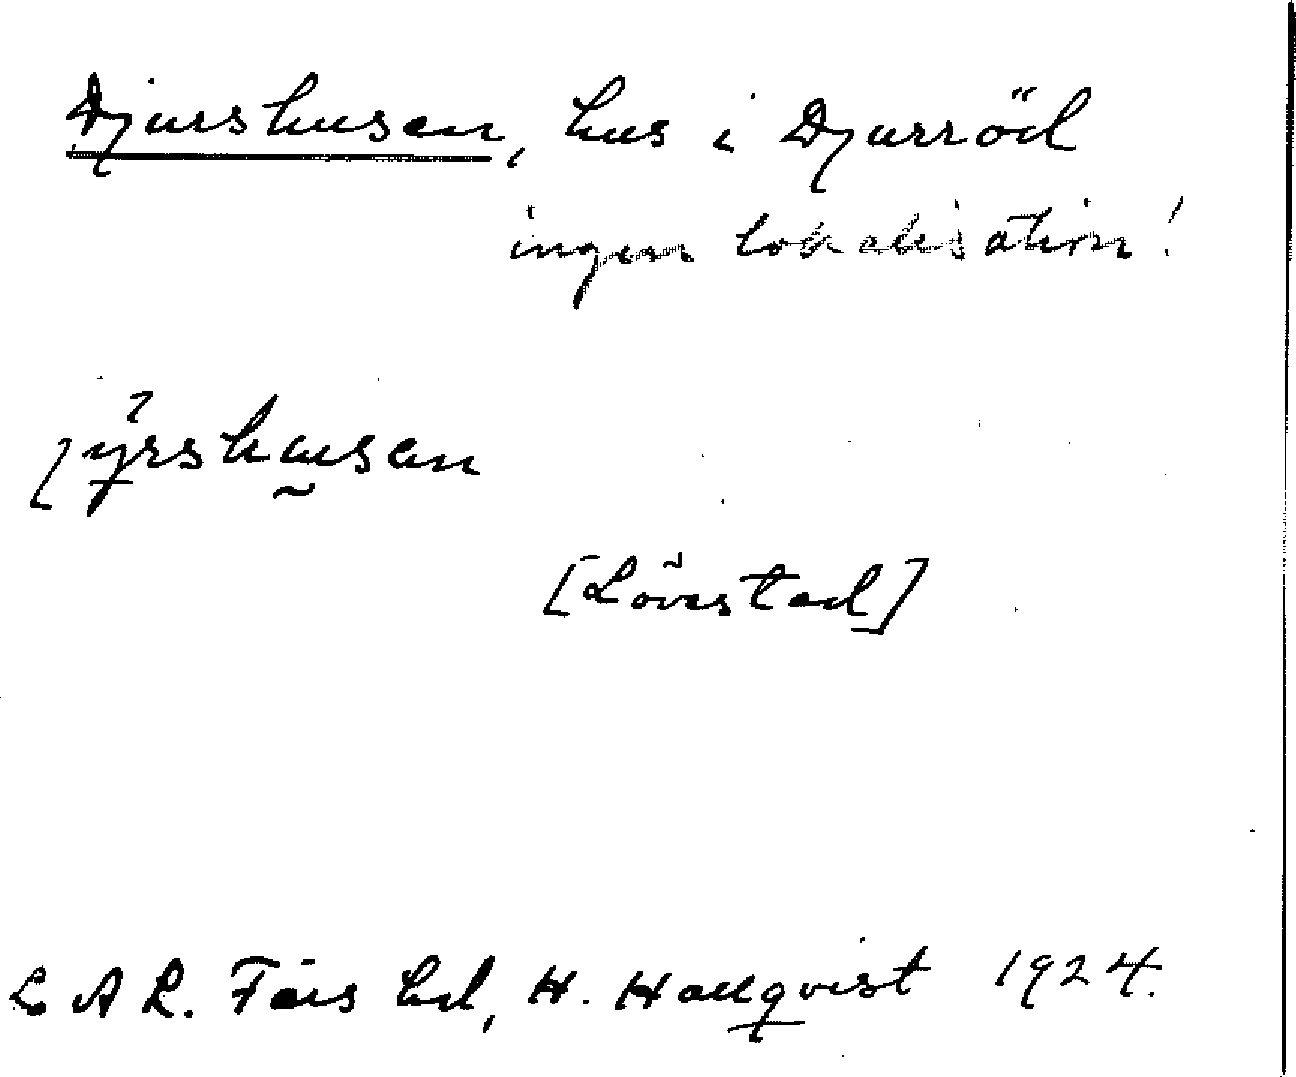 Djurshusen, hus i Djurröd
ingen lokalisation!
[Lövestad]
L A R. Färs hd, H. Hallqvist 1924.